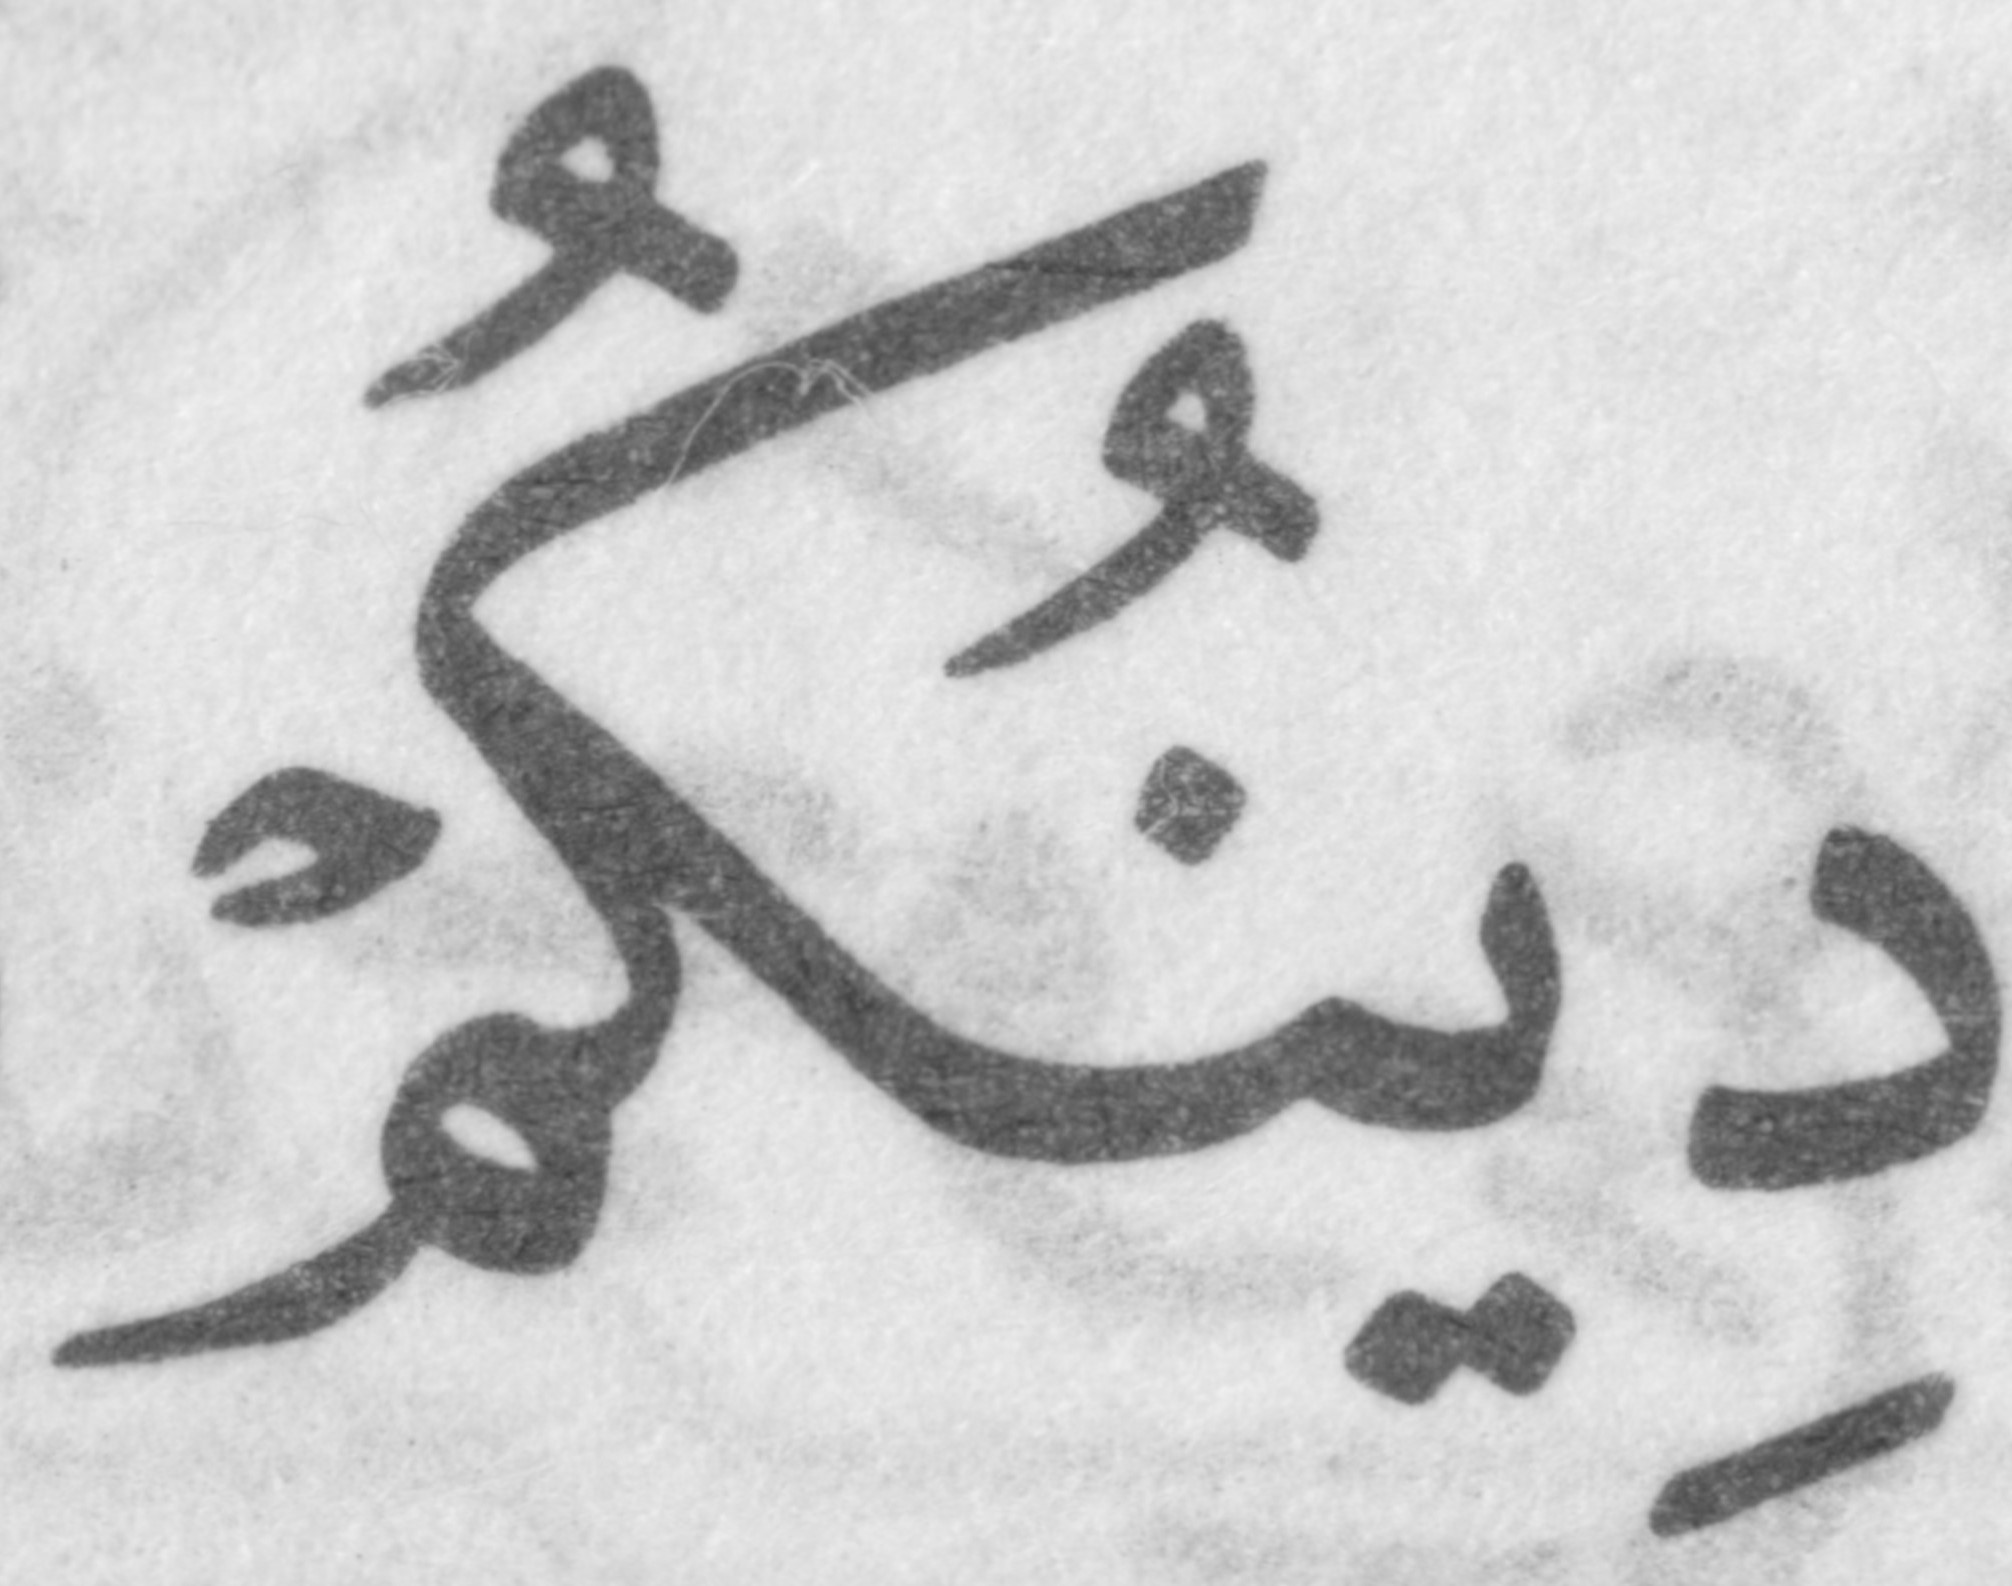 دِينُكُمْ